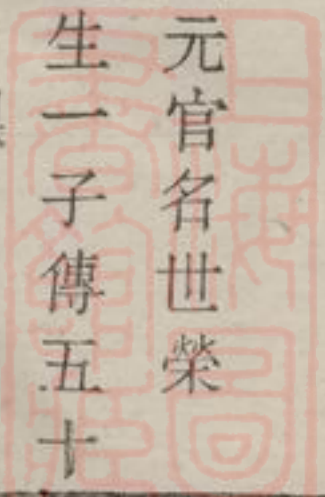 元官名世榮
生一子傳五十